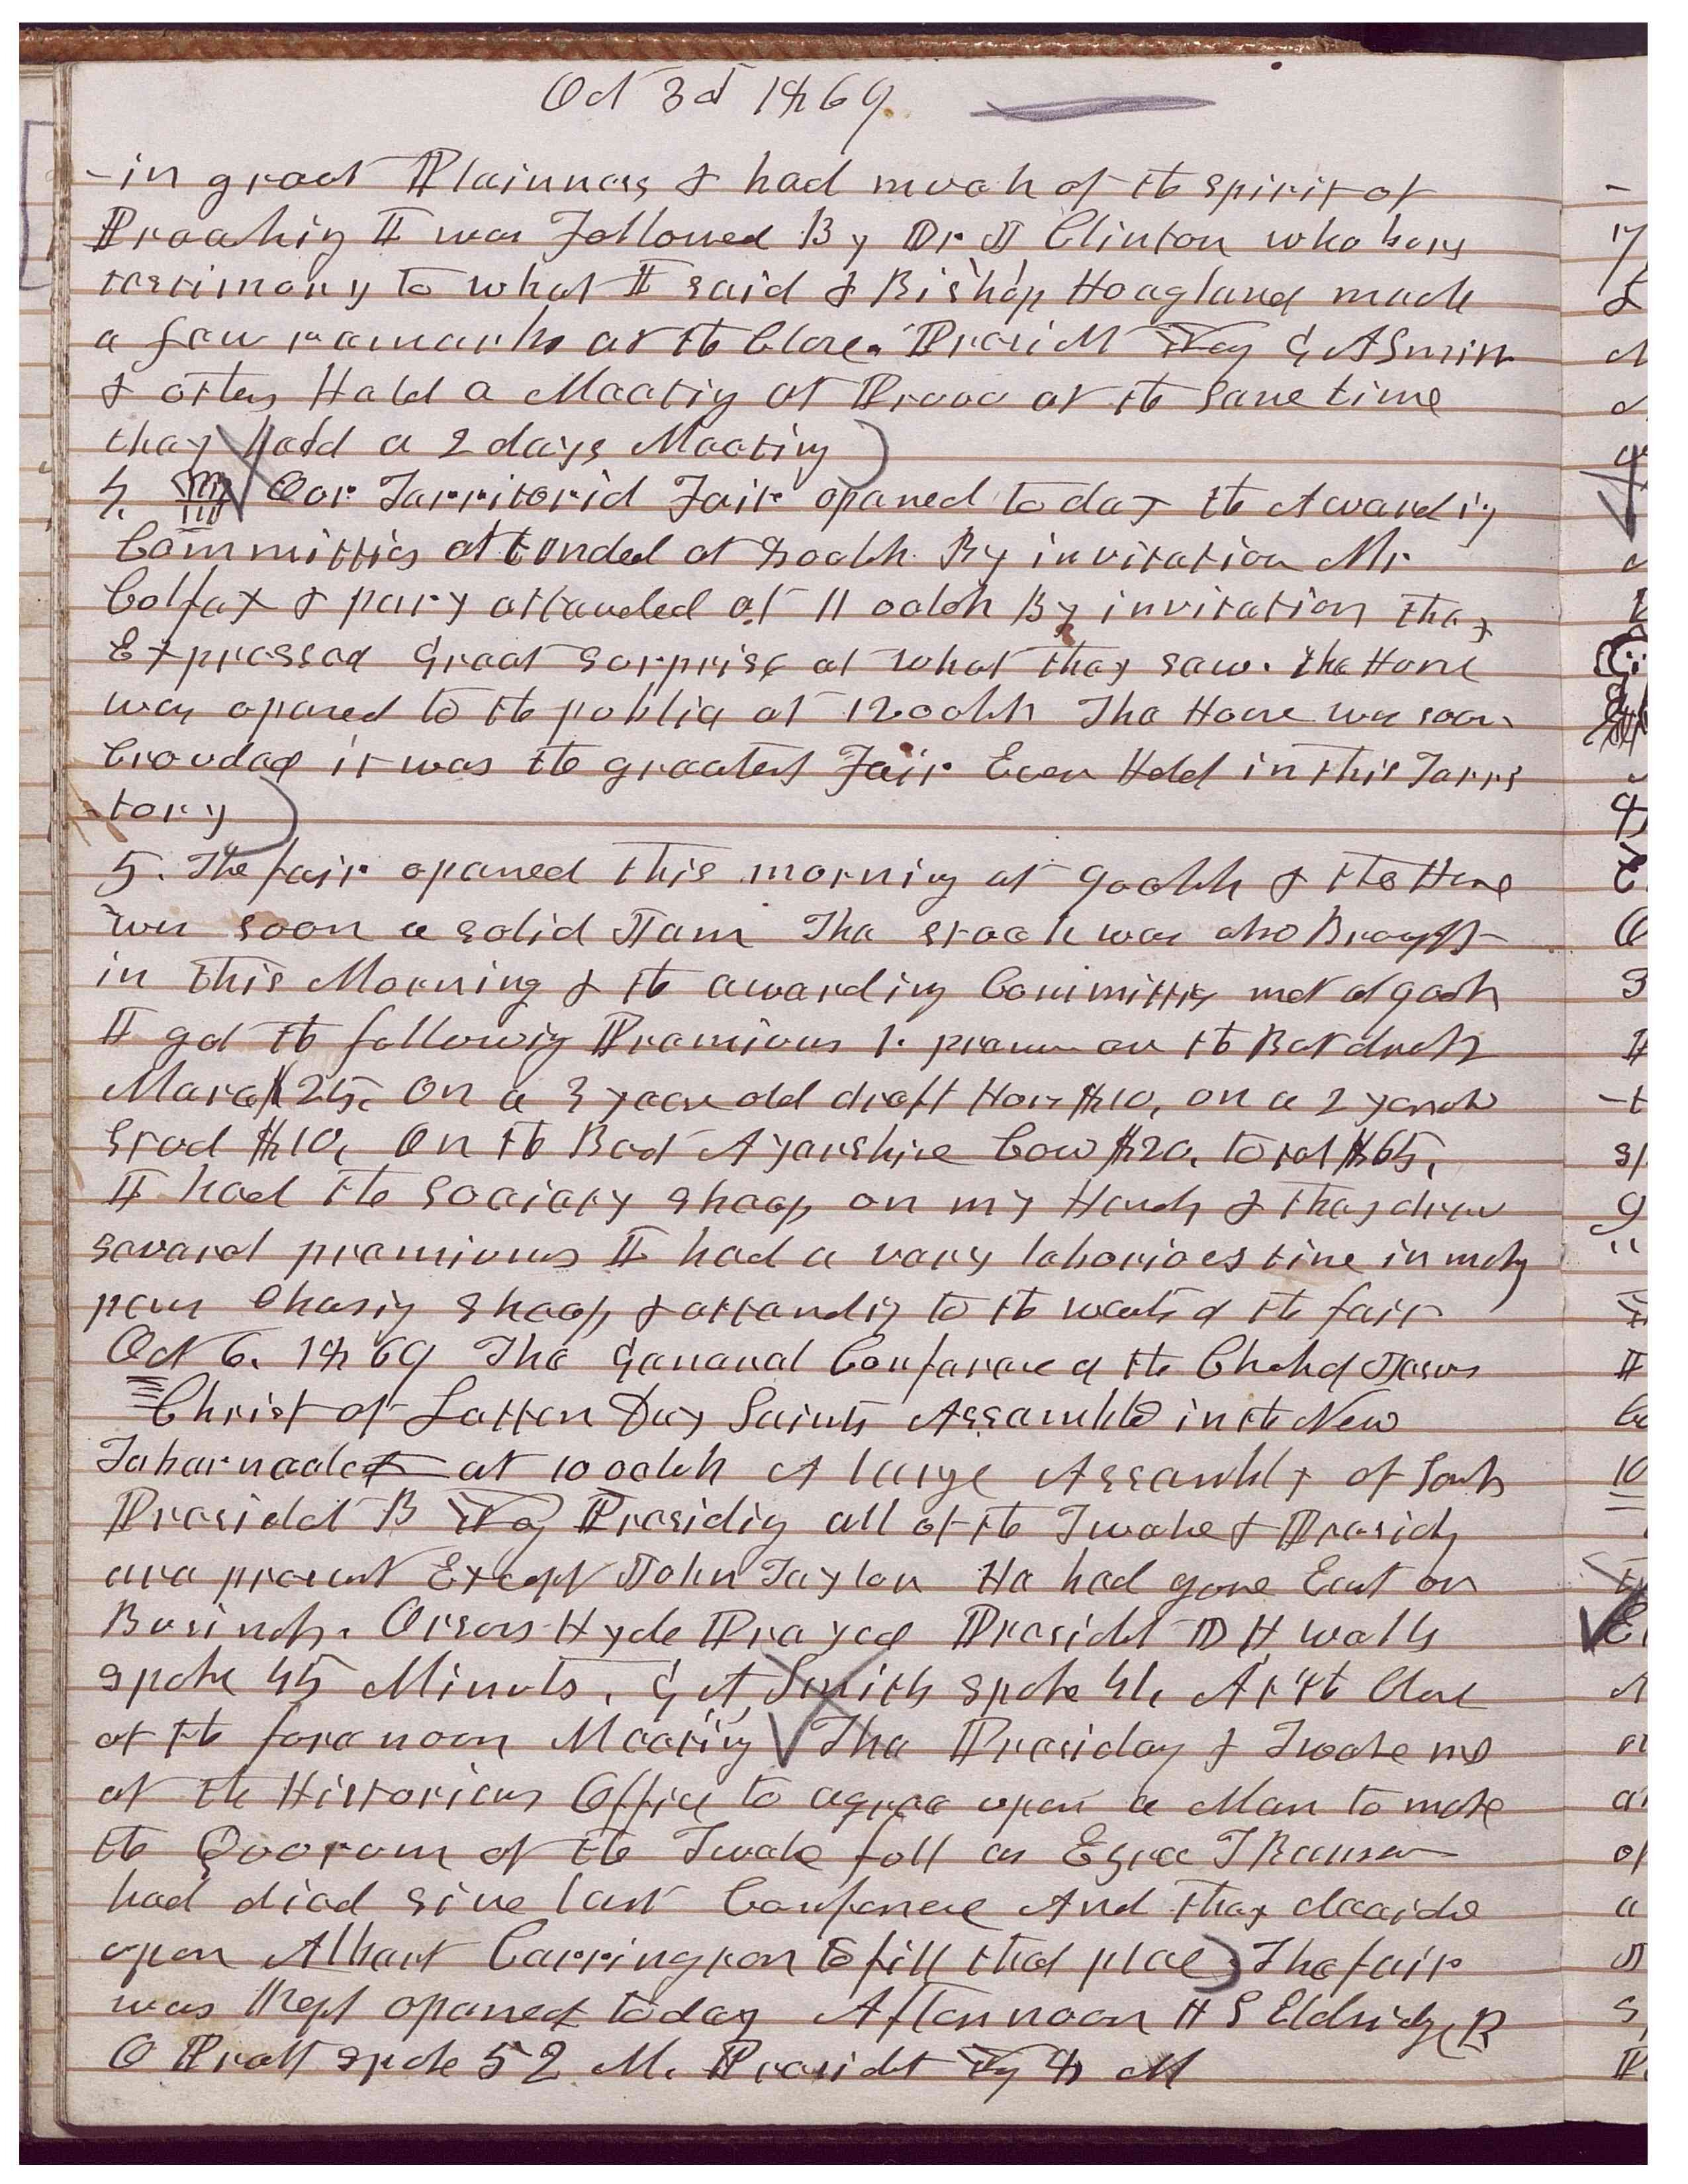 Oct 3d 1869
-in great Plainness & had much of the spirit of
Preaching I was Followed By Dr J Clinton who bore
testimony to what I said & Bishop Hoagland made
a few remarks at the Close. Presidt Young G A Smith
& others Held a Meeting at Provo at the same time
they held a 2 days Meeting
4. Our Territorial Fair opened to day the Awarding
Committies attended at 8 oclok By invitation Mr
Colfax & party attended at 11 oclok By invitation they
Expressed Great surprise at what they saw. The House
was opened to the public at 12 oclok The House was soon
Crouded it was the greatest Fair Ever Held in this Terri
-tory
5. The fair opened this morning at 9 oclok & the House
was soon a solid Jam The stock was also Brought
in this Morning & the awarding Committies met at 9 oclok
I got the following Premiums 1. premium on the Best draft
Mare $25. On a 3 year old draft Horse $10, on a 2 year old
Stud $10, On the Best Ayershire Cow $20, total $65,
I had the Society sheep on my Hands & they drew
several premiums I had a very laborioes time in
pur Chasing sheep & attending to the wants of the fair
Oct 6. 1869 The General Conferance of the Church of Jesus
Christ of Latter Day Saints Assembled in the New
Tabernacle at 10 oclok A large Assembly of Saints
Presidet B Young Presiding all of the Twelve & Presidency
are present Except John Taylor He had gone East on
Business. Orson Hyde Prayed Presidet D H Wells
spoke 45 Minuts, G A Smith spoke 41, At the Close
of the fore noon Meeting The Presidency & Twelve met
at the Historians Office to agree upon a Man to make
the Quorum of the Twelve full as Ezra T Benson
had died since last Conferene And they decided
upon Albert Carrington to fill that place The fair
was kept opened to day Afternoon H S Eldridge, P
O Pratt spoke 52 M. Presidt Young 8 M